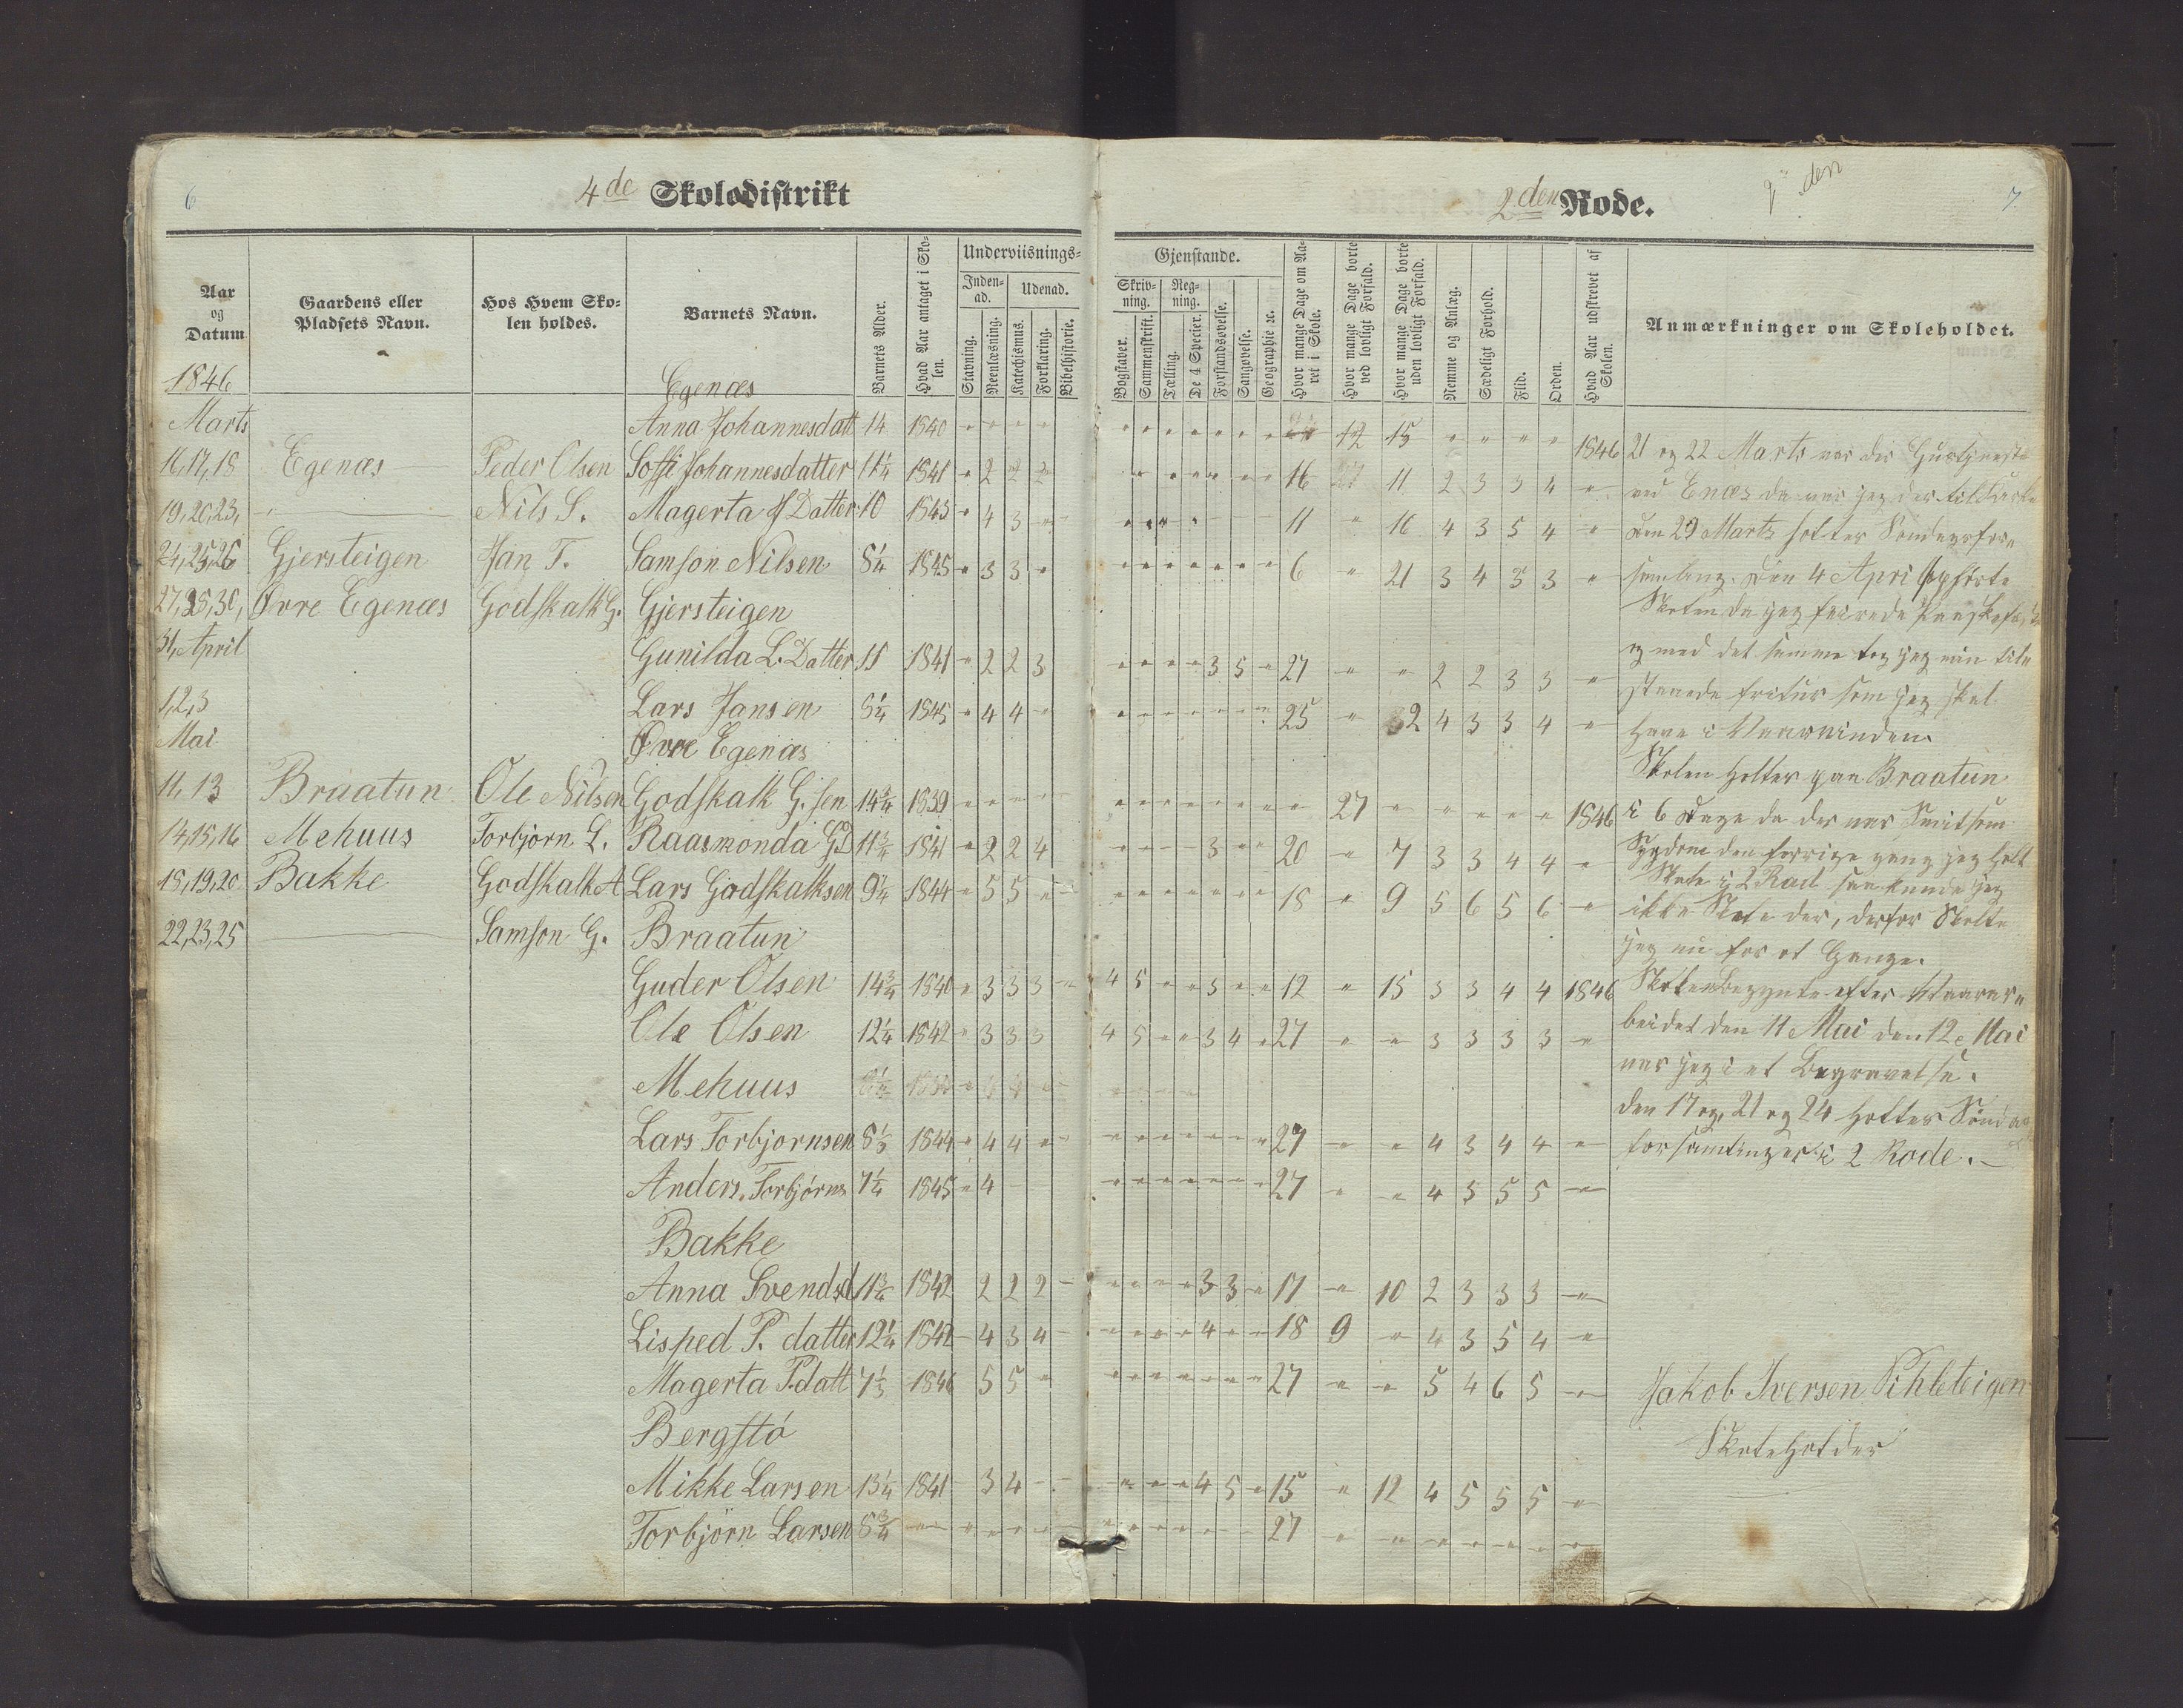 6
4de Skoledistrikt
2den Rode.
den
7
Aar og Datum
Gaardens eller Pladsets Navn.
Hos Hvem Skolen holdes.
Barnets Navn.
Barnets Alder.
Hvad Aar antaget i Skolen.
Underviisnings-
Inden-ad.
Udenad.
Stavning.
Reenlæsning.
Katechismus.
Forklaring.
Bibelhistorie.
Gjenstande.
Skriv-ning.
Reg-ning.
Bogstaver.
Sammenskrift.
Tælling.
De 4 Specier.
Forstandsøvelse.
Sangøvelse.
Geographie ec.
Hvor mange Dage om Aaret i Skole.
Hvor mange Dage borte ved lovligt Forfald.
Hvor mange Dage borte uden lovligt Forfald.
Nemme og Anlæg.
Sædeligt Forhold.
Flid.
Orden.
Hvad Aar udskrevet af Skolen.
Anmærkninger om Skoleholdet.
1846
Egenæs
Marts Anna Johannesdatt 14 1840 12 15 1846
16,17,18 Egenæs Peder Olsen Soffi Johannesdatter 11¼ 1841 2 2 2 16 11 2 3 3 4
19,20,23, Nils S. Magerta J Datter 10 1843 4 3 11 16 4 3 5 4
24,25,26 Gjersteigen Jan T. Samson Nilsen 8¼ 1845 3 3 6 21 3 4 3 3
27,28,30, Øvre Egenæs Godskalk G. Gjersteigen
31, April Gunilda L. Datter 11 1841 2 2 3 3 5 27 2 2 3 3
1,2,3 Lars Jansen 8¼ 1845 4 4 25 2 4 3 3 4
Mai Øvre Egenæs
11, 13 Braatun Ole Nilsen Godskalk G. sen 14¾ 1839 27 1846
14,15,16 Mehuus Torbjørn L. Raasmonda GD 11¾ 1841 2 2 4 3 20 7 3 3 4 4
18,19,20 Bakke Godskalk A Lars Godskalksen 9¼ 1844 5 5 18 9 5 6 5 6
22,23,25 Samson G. Braatun
Guder Olsen 14¾ 1840 3 3 3 4 5 3 12 15 3 3 4 4 1846
Ole Olsen 12¼ 1842 3 3 3 4 5 3 4 27 3 3 3 3
Mehuus
Lars Torbjornsen 8½ 1844 4 4 27 4 3 4 4
Anders Torbjørns 7¼ 1845 4 27 4 3 5 5
Bakke
Anna Svendsd 11¾ 1842 2 2 2 3 3 17 10 2 3 3 3
Lisped P. datter 12¼ 1842 4 3 4 4 18 9 4 3 5 4
Magerta P.datt 7½ 1846 5 5 27 5 4 6 5
Bergstø
Mikke Larsen 13¼ 1841 3 4 4 5 15 12 4 5 5 5
Torbjørn Larsen 8¾ 27
21 og 22 Marts var der
ved Enæs da var jeg der
Den 29 Marts holtes Søndagsfor-
samling. Den 4 April ophørte
Skolen da jeg
og med det samme tog jeg min til-
staaede som jeg skal
have i Vaarvinden.
Skolen holtes paa Braatun
i 6 Dage da der var Smitsom
Sygdom den forrige gang jeg holt
Skole i 2 Rod saa kunde jeg
ikke Skole der, derfor Skolte
jeg nu for et Gange.
Skolen Begynte efter Vaarar-
beidet den 11 Mai den 12 Mai
var jeg i et Begravelse.
den 17 og 21 og 24 holtes Søndag
forsamlinger i 2 Rode.
Jakob Iversen Pihleteigen
Skoleholder